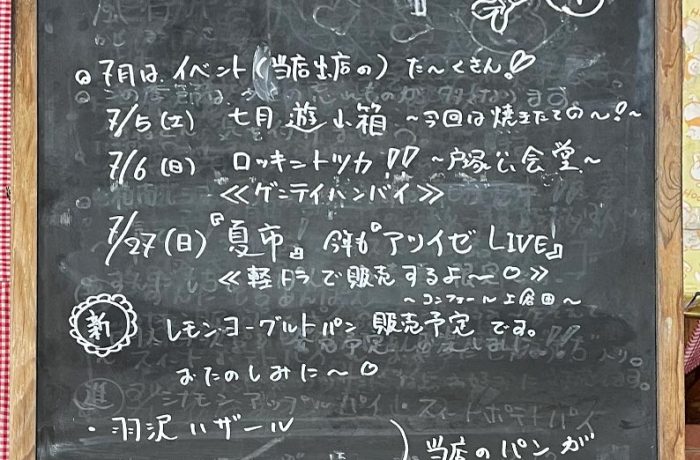 ◎7月は イベント(当店出店の) た〜くさん!♡
7/5(土) 七月遊小箱 〜今回は焼きたての〜!〜
7/6(日) ロッキントツカ!! 〜戸塚公会堂〜
≪ゲンテイハンバイ≫
7/27(日)『夏市』今年も『アツイゼ LIVE』
≪軽トラで販売するよ〜○≫
〜コンフォール上倉田〜
新 レモンヨーグルトパン 販売予定です。
おたのしみに〜○
・羽沢ハザール
当店のパンが